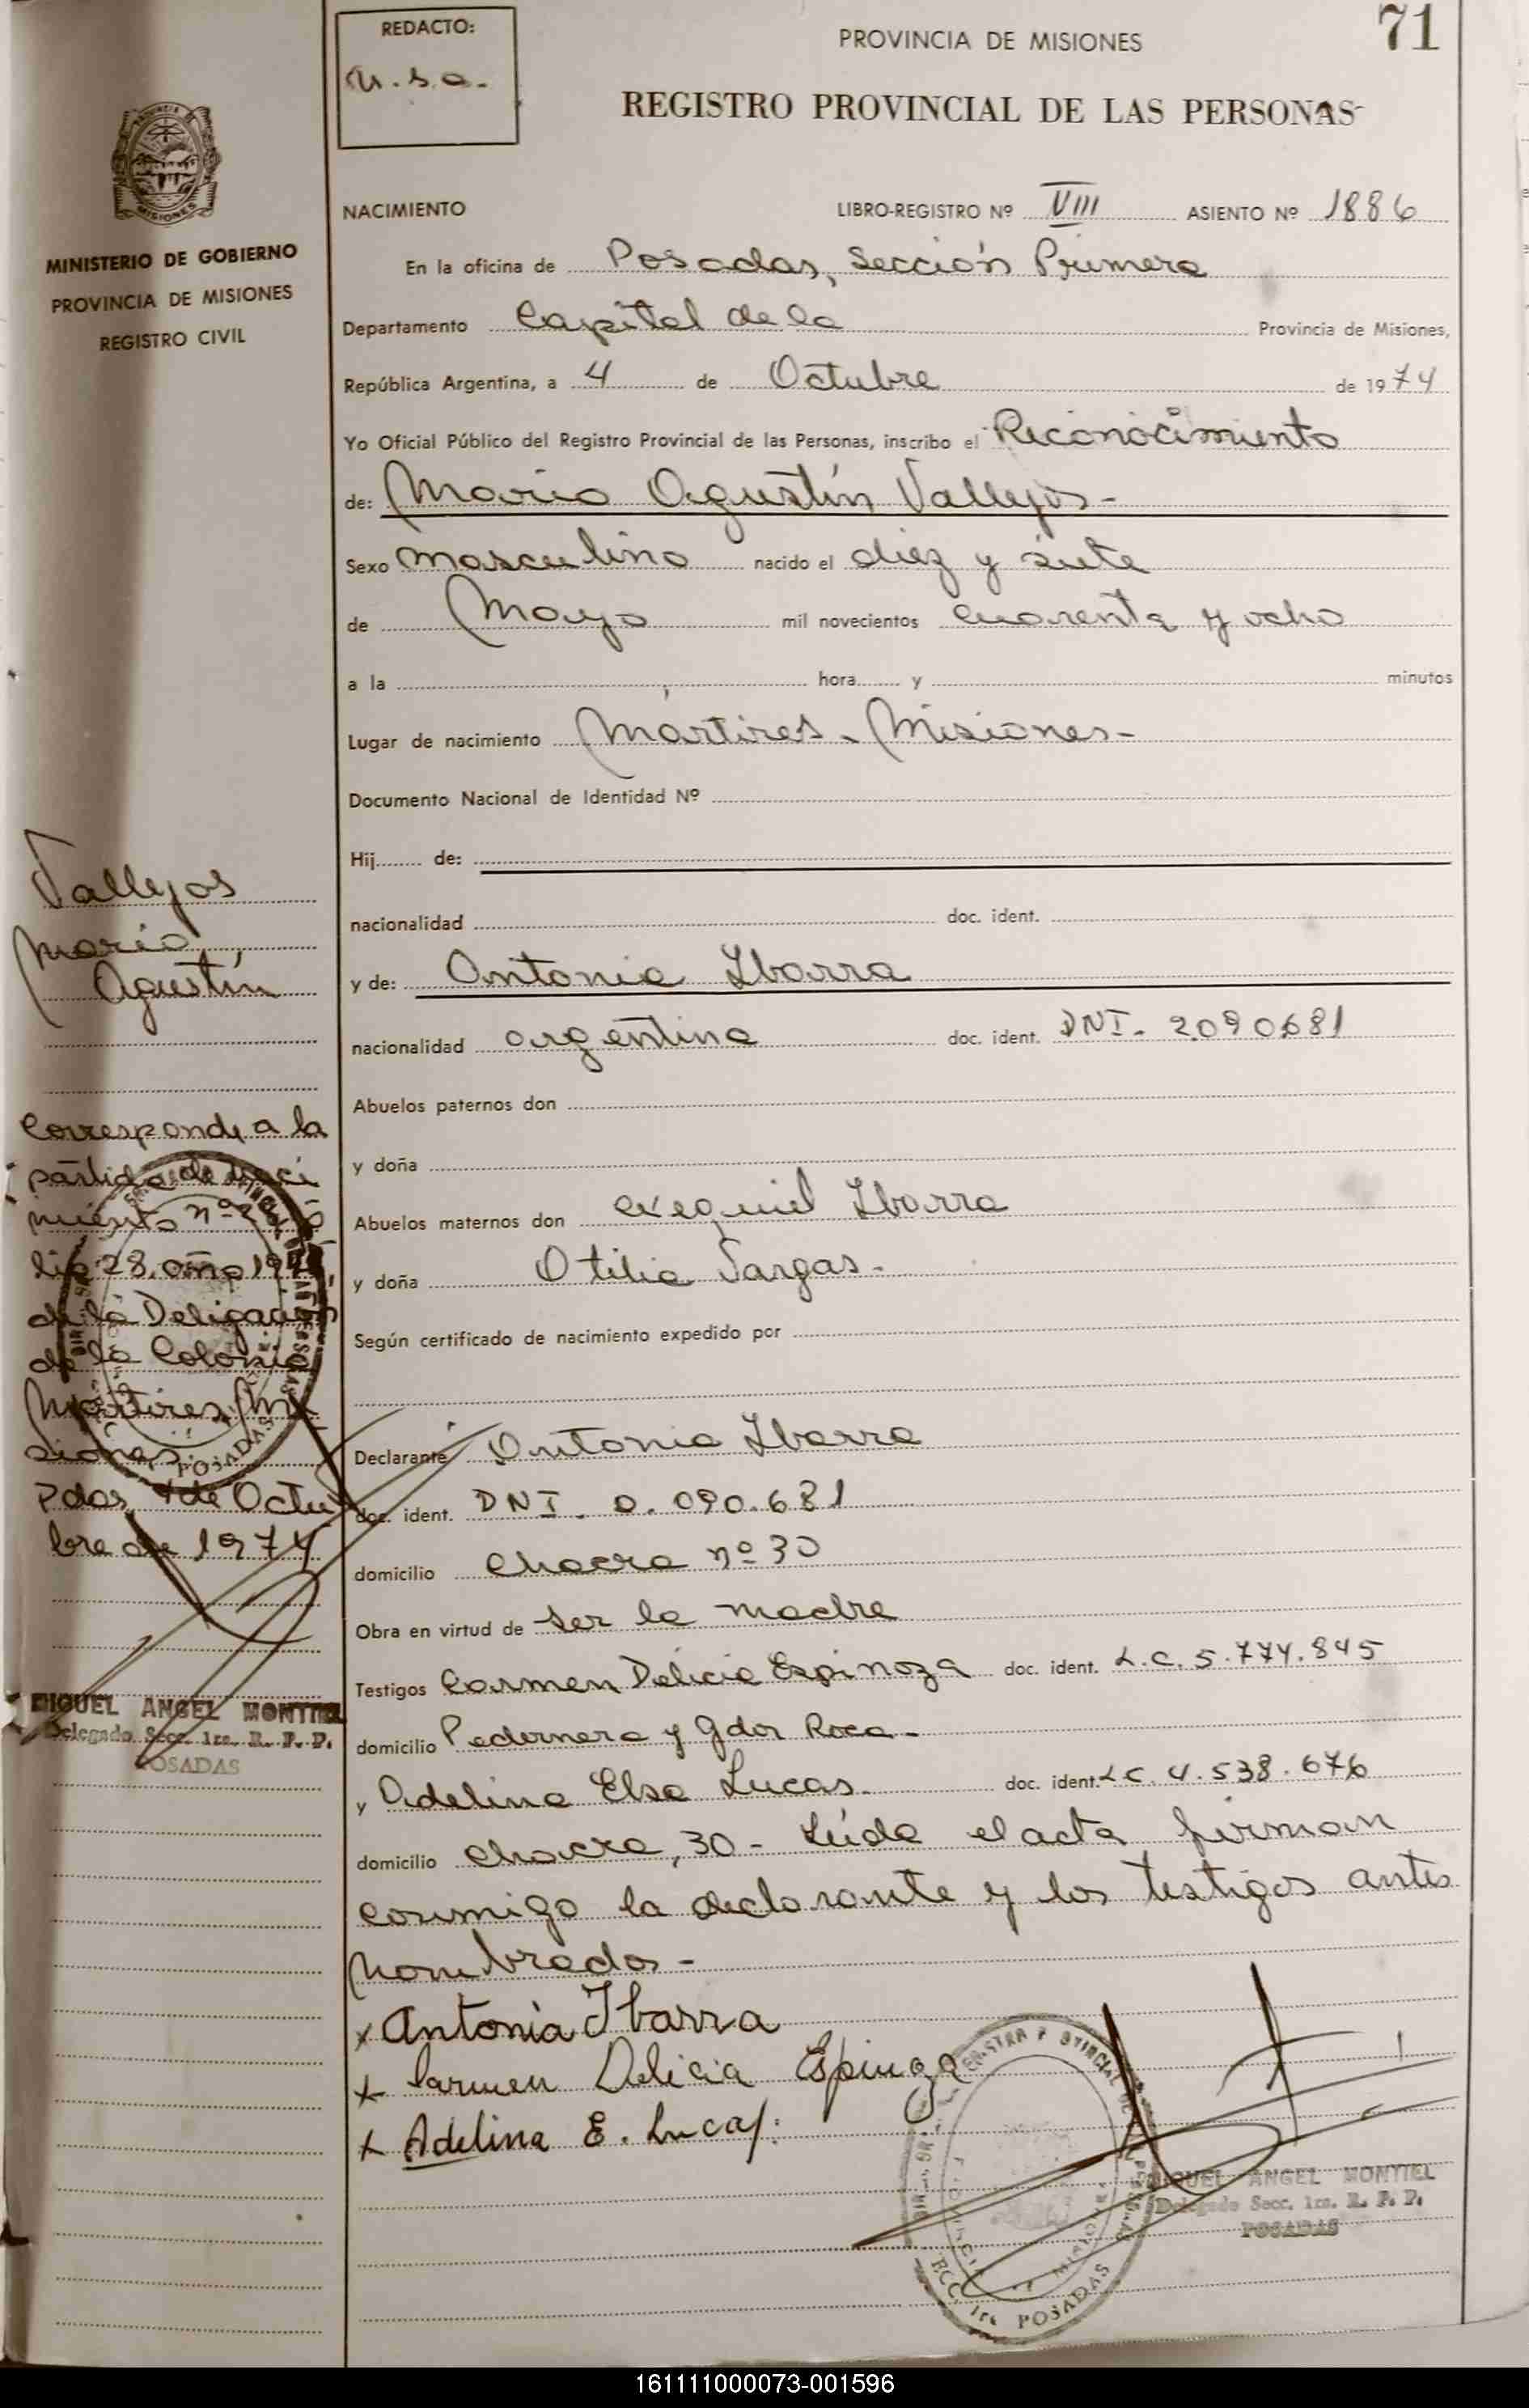 REDACTO:
u.s.a.
PROVINCIA DE MISIONES
71
REGISTRO PROVINCIAL DE LAS PERSONAS
MINISTERIO DE GOBIERNO
PROVINCIA DE MISIONES
REGISTRO CIVIL
NACIMIENTO LIBRO-REGISTRO Nº VIII ASIENTO Nº 1886
En la oficina de Posadas, Sección Primera
Departamento Capital de la Provincia de Misiones,
República Argentina, a 4 de Octubre de 1974
Yo Oficial Público del Registro Provincial de las Personas, inscribo el Reconocimiento
de: Mario Agustín Vallejos-
Sexo masculino nacido el diez y siete
de Mayo mil novecientos cuarenta y ocho
a la hora y minutos
Lugar de nacimiento Mártires - Misiones-
Documento Nacional de Identidad Nº
Hij de:
nacionalidad doc. ident.
y de: Antonia Ibarra
nacionalidad argentina doc. ident. DNI- 2090681
Abuelos paternos don
y doña
Abuelos maternos don exequiel Ibarra
y doña Otilia Vargas-
Según certificado de nacimiento expedido por
Declarante Antonia Ibarra
doc. ident. DNI. 0.090.681
domicilio Chacra nº 30
Obra en virtud de ser la madre
Testigos Carmen Delicia Espinoza doc. ident. L.C. 5.774.845
domicilio Pedernera y Gdor Roca-
y Adelina Elsa Lucas. doc. ident. LC. 4.538.676
domicilio chacra, 30- Leída el acta firman
conmigo la declarante y los testigos antes
nombrados-
x Antonia Ibarra
x Carmen Delicia Espinoza
x Adelina E. Lucas.
MIGUEL ANGEL MONTIEL
Delegado Secc. 1ra. R. P. P.
POSADAS
Vallejos
Mario
Agustín
Corresponde a la
partida de naci
miento nº
28. año 19
de la Delegación
de la Colonia
Mártires, Mi
siones.
Pdas, 4 de Octu
bre de 1974
MIGUEL ANGEL MONTIEL
Delegado Secc. 1ra. R. P. P.
POSADAS
161111000073-001596